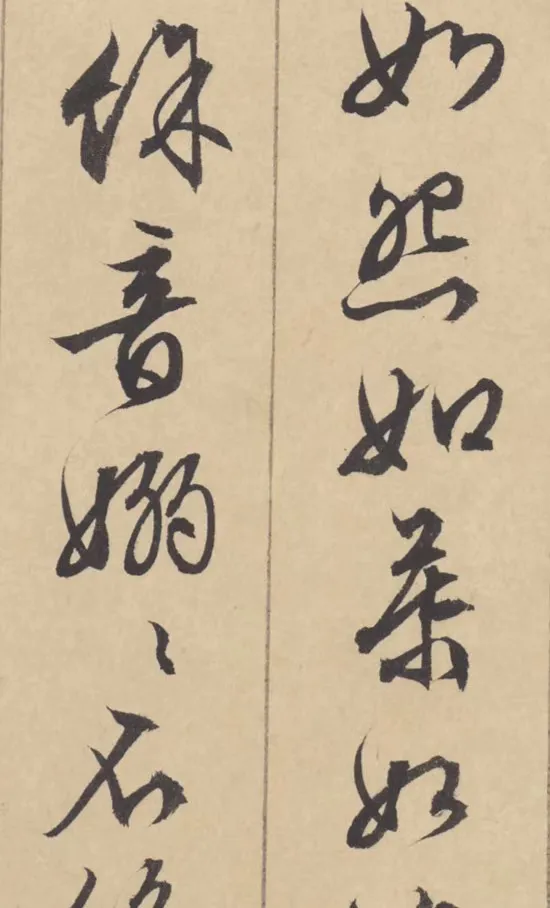 如怨如慕如
餘音嫋〻不